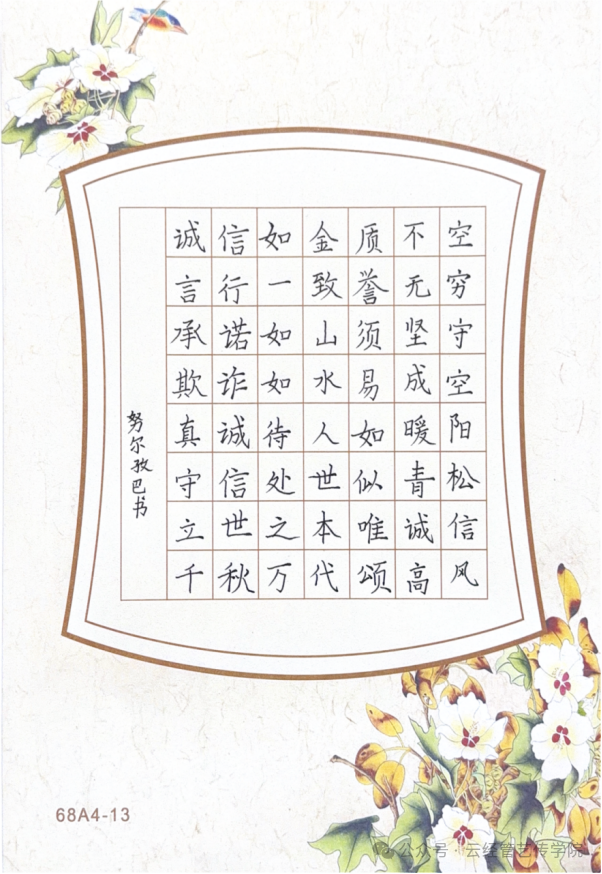 诚信如金质不空
言行一致誉无穷
承诺如山须坚守
欺诈如水易成空
真诚待人如暖阳
守信处世似青松
立世之本唯诚信
千秋万代颂高风
努尔孜巴书
68A4-13
公众号·云经管艺传学院